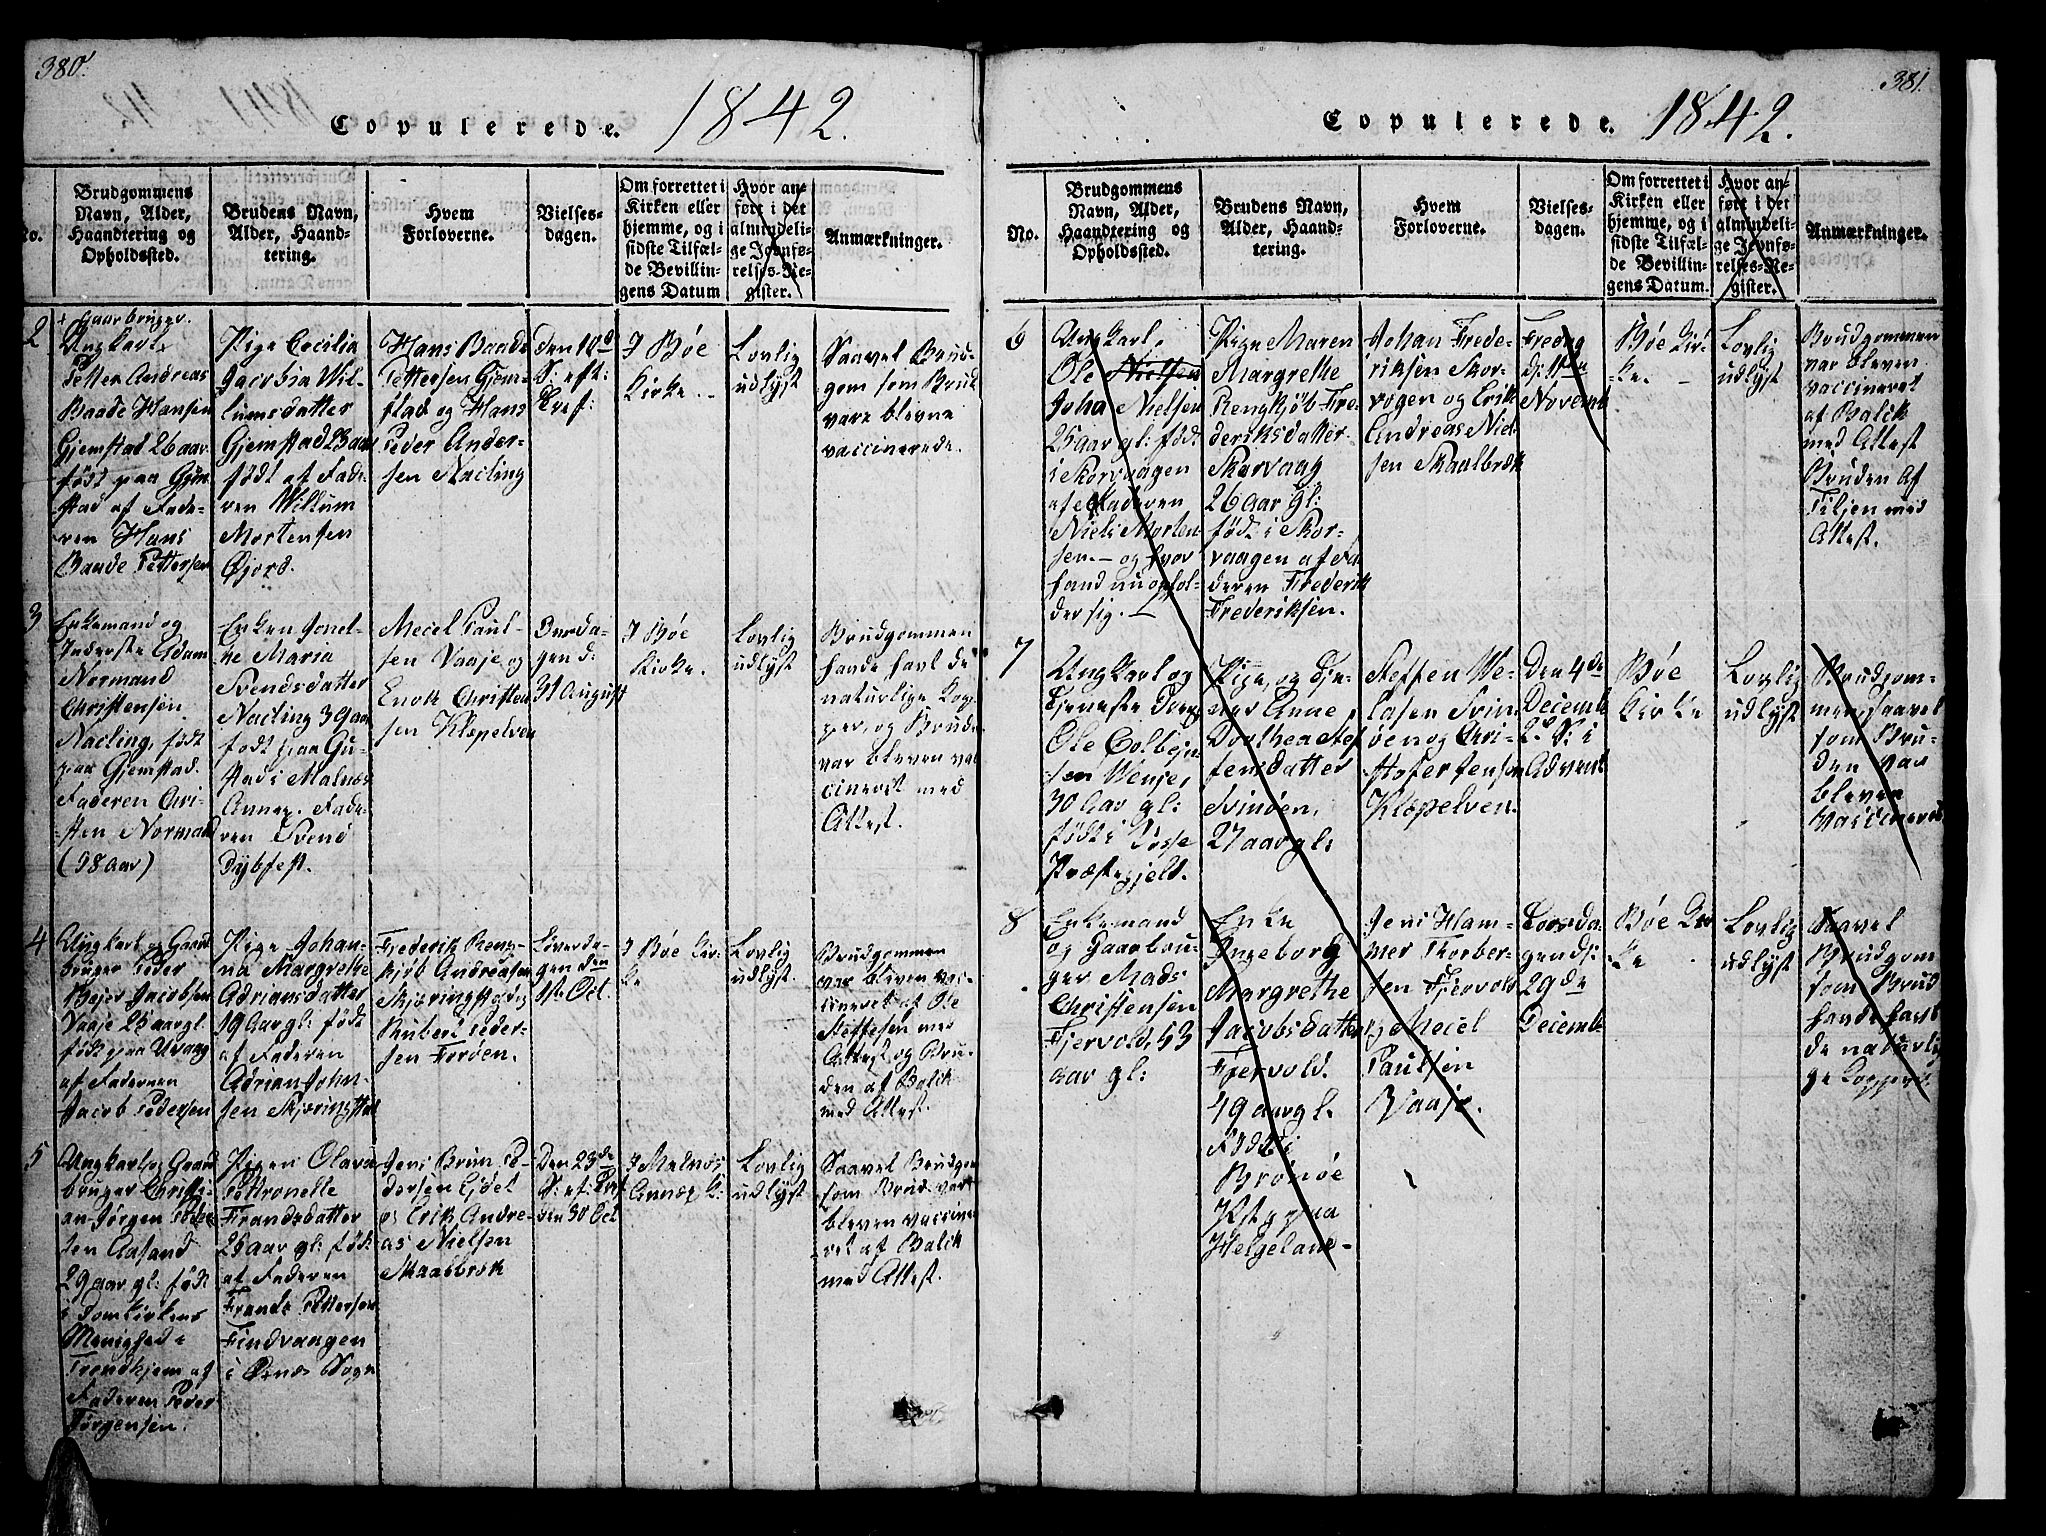 380.
Copulerede. 1842.
No.
Brudgommens
Navn, Alder,
Haandtering og
Opholdssted.
Brudens Navn,
Alder, Haand-
tering.
Hvem
Forloverne.
Vielses-
dagen.
Om forrettet i
Kirken eller
hjemme, og i
sidste Tilfæl-
de Bevillin-
gens Datum
Hvor an-
ført i det
almindeli-
ge Jevnfø-
relses-Re-
gister.
Anmærkninger.
2
+ Gaarbruger.
Ungkarl
Petter Andreas
Baade Hansen
Gjemstad 26 aar
født paa Gjem-
stad af Fade-
ren Hans
Baade Pettersen
Pige Cecilia
Jacobia Wil-
lumsdatter
Gjemstad 23 aar
født af Fade-
ren Willum
Mortensen
Øjord.
Hans Baade
Pettersen Gjem-
stad og Hans
Peder Ander-
sen Nacling
Den 10d
S: eft:
I Bøe
Kirke.
Lovlig
udlyst
Saavel Brud-
gom som Brud
vare blevne
vaccinerede.
3
Enkemand og
Inderste Adam
Normand
Christensen
Nacling, født
paa Gjemstad.
Faderen Chri-
sten Normand
(38 aar)
Enken
Maria
Svendsdatter
Nacling 39 aar
født paa Gu-
stad i Malnæs
Annex. Fade-
ren Svend
Dybfest.
Mecel Paul-
sen Vaaje og
Enok Christen
sen Kløpelven
gen d:
31 August
I Bøe
Kirke.
Lovlig
udlyst
Brudgommen
havde havt de
naturlige Kop-
per, og Brude
var bleven vac
cineret med
Attest.
4
Ungkarl og Gaard
bruger Peder
Bejer Jacobsen
Vaaje 25 aar gl.
født paa
af Faderen
Jacob Pedersen
Pige Johan-
na Margrethe
Adriansdatter
19 Aar gl: født
af Faderen
Adrian John-
sen Skjeringstad
Frederik Reng-
kjøb Andreasen
Skjeringstad og
Rubert Peder-
sen Forøen.
Løverda-
gen den
1ste Oct.
I Bøe Kir-
ke
Lovlig
udlyst.
Brudgommen
var bleven vac-
cineret af Ole
Steffesen med
Attest og Bru-
den af Balck
med Attest.
5
Ungkarl og Gaard
bruger Christi-
an Jørgen Peder
sen Aasand
29 aar gl: født
i Domkirkens
Menighed i
Trondhjem af
Faderen Peder
Jørgensen.
Pigen Olava
Petronelle
Frandsdatter
25 aar gl: født
af Faderen
Frands Pettersen
Findvaagen
i Øxnæs Sogn
Jens Brun Pe-
dersen Ejdet
og Erik Andre-
as Nielsen
Skaalbrek
Den 23de
S: ef: Tref
den 30 Oct
I Malnæs
Annex K:
Lovlig
udlyst
Saavel Brudgom
som Brud var
bleven vaccine
ret af Balck
med Attest.
381.
Copulerede. 1842.
No.
Brudgommens
Navn, Alder,
Haandtering og
Opholdssted.
Brudens Navn,
Alder, Haand-
tering.
Hvem
Forloverne.
Vielses-
dagen.
Om forrettet i
Kirken eller
hjemme, og i
sidste Tilfæl-
de Bevillin-
gens Datum.
Hvor an-
ført i det
almindeli-
ge Jevnfø-
relses-Re-
gister.
Anmærkninger.
6
Ungkarl,
Ole Nielsen
Joha Nielsen
25 aar gl: født
i Skorvaagen
af Faderen
Niels Morten-
sen. - og hvor
hand nu ophol-
der sig.
Pige Maren
Margrethe
Rengkjøb Fre-
deriksdatter
Skorvaag
26 aar gl:
født i Skor-
vaagen af Fa
deren Frederik
Frederiksen.
Johan Frede-
riksen Skor-
vogen og Erik
Andreas Niel-
sen Skaalbrek
Fredag
Novemb
Bøe Kir-
ke.
Lovlig
udlyst
Brudgommen
var bleven
vaccineret
af Balck
med Attest
Bruden af
Tiljen med
Attest.
7
Ungkarl og
Tjeneste Dreng
Ole Colbejn
sen Wenje,
30 Aar gl:
født i
Præstegjeld.
Pige, og Tje-
ner Anne
Dorthea Stef
fensdatter
Svinøen,
27 aar gl:
Steffen We-
lasen Svin
øen og Chri-
stofer Jensen
Kløpelven.
Den 4de
Decemb
2. S: i
Advent
Bøe
Kirke
Lovlig
udlyst
Brudgom-
men saavel
som Bru-
den var
bleven
vaccineret
8
Enkemand
og Gaarbru-
ger Mads
Christensen
Fjervold, 53
aar gl:
Enke
Ingeborg
Margrethe
Jacobsdatter
Fjervold.
49 aar gl.
Født i
Brønøe
Pstg paa
Helgeland
Jens Ham-
mer Thorber-
sen Fjervold
og Mecel
Paulsen
Vaaje.
Torsda-
gen d:
29de
Decemb
Bøe Kir
ke
Lovlig
udlyst
Saavel
Brudgom
som Brud
havde havt
de naturli
ge Kopper.